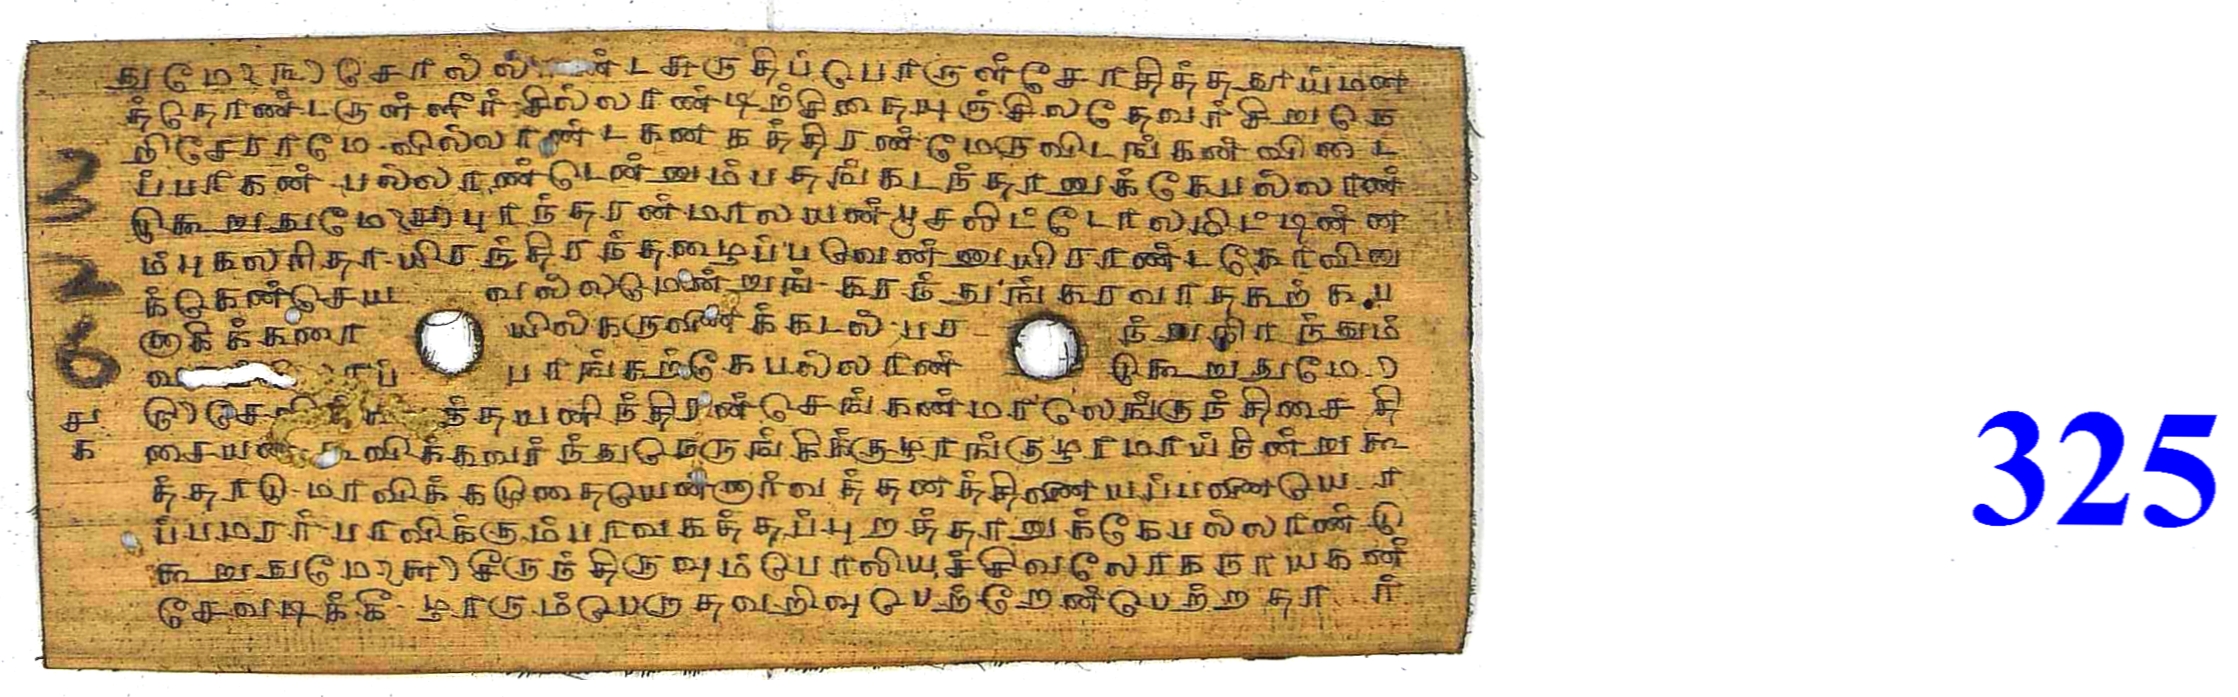 துமே (௩) சொல்ல்ண்டசுருதிப்பொருள்சோதித்ததூய்மன
த்தொண்டருள்ளீர் சில்லாண்டிற்சிதையுஞ்சிலதேவர்சிறுநெ
றிசேராமே வில்லாண்டகனகத்திரண்மேருவிடங்கன்விடை
ப்பாகன் பல்லாண்டென்னும்பதங்கடந்தானுக்கேபல்லாண்
டுகூறுதுமே (௪) புரந்தரன்மாலயன்பூசலிட்டோலமிட்டின்ன
ம்புகலரிதாயிரந்திரந்தழைப்பவென்னுயிராண்டகோவினு
க்கென்செய வல்லமென்றுங் கரந்துங்கரவாதகற்கப
னாகிக்கரை யில்கருணைக்கடல் பர ந்துநிரந்தும்
வ ாப் பாங்கற்கேபல்லாண் டுகூறுதுமே (
௫) சே ந்தயனிந்திரன்செங்கண்மாலெங்குந்திசை தி
சையன கூவிக்கவர்ந்துநெருங்கிக்குழாங்குழாமாய்நின்றுகூ
த்தாடு மாவிக்கமுதையென்னார்வத்தனத்தினையப்பனையொ
ப்பமரர் பாவிக்கும்பாவகத்தப்புறத்தானுக்கேபல்லாண்டு
கூறுதுமே (௬) சீருந்திருவும்பொலியச்சிவலோகநாயகன்
சேவடிக்கீ ழாரும்பெறாதவறிவுபெற்றேன்பெற்றதார்
326
௪
௧
325